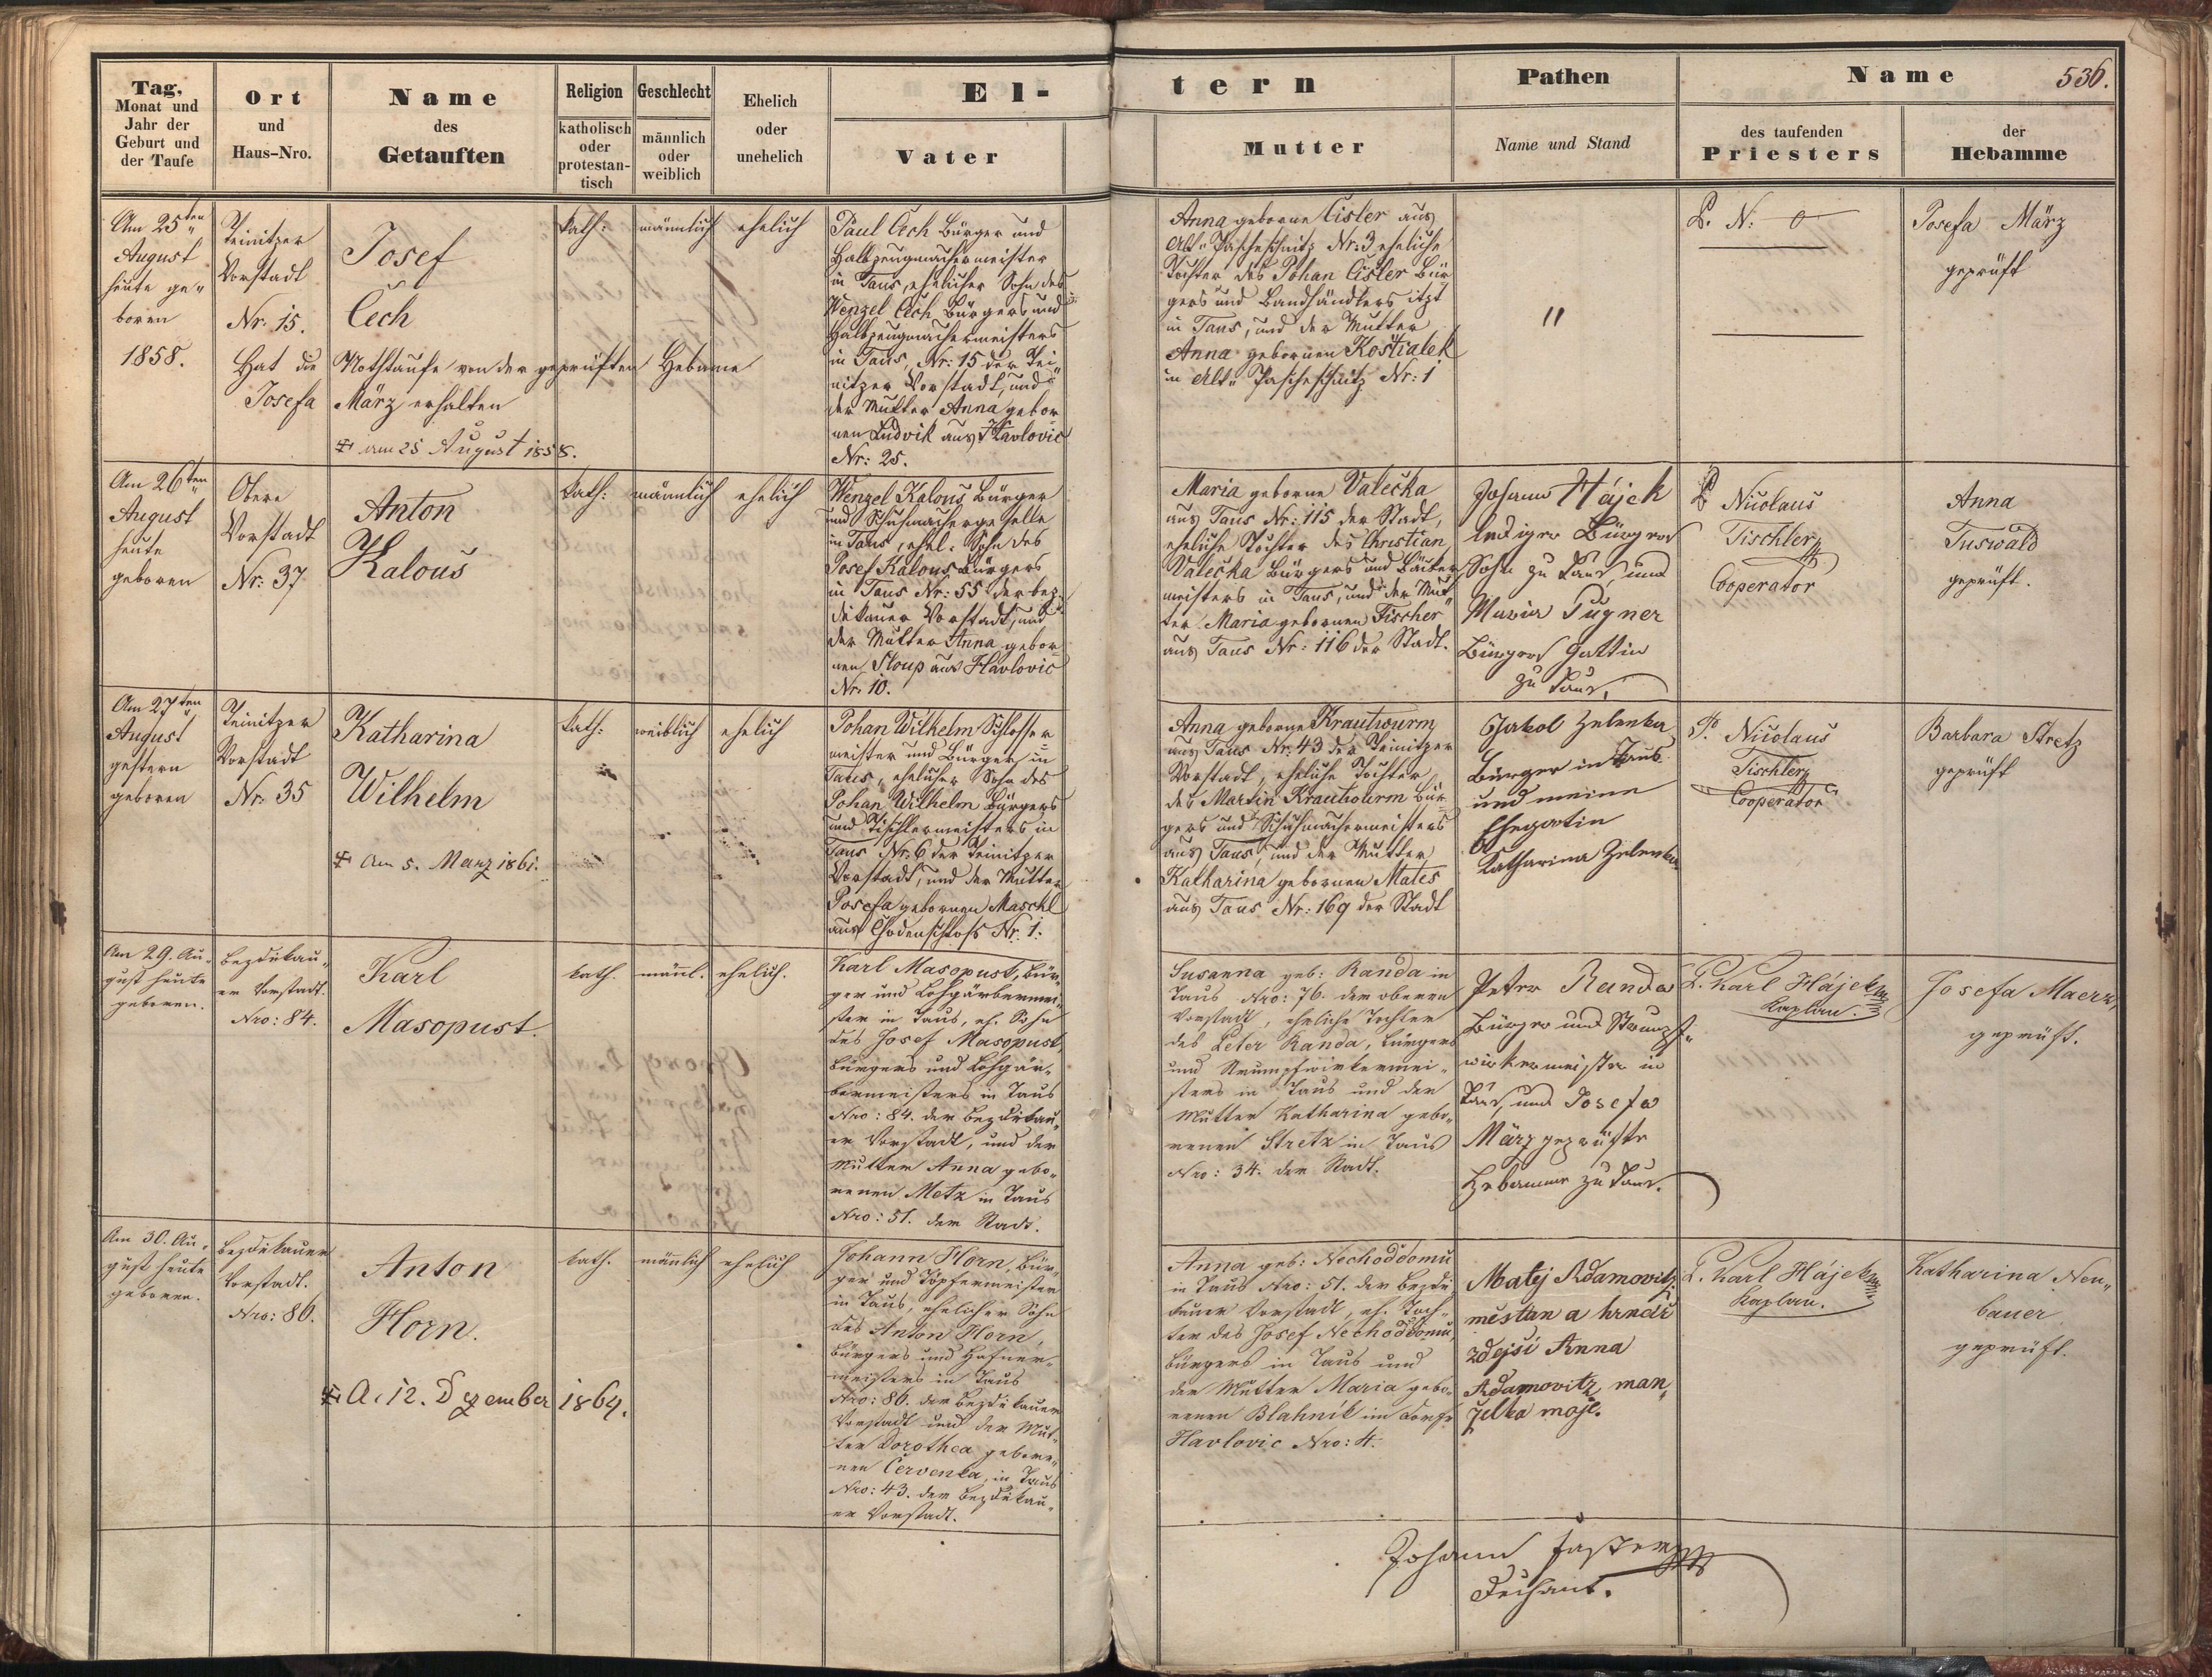 Tag,
Monat und
Jahr der
Geburt und
der Taufe
Ort
und
Haus-Nro.
Name
des
Getauften
Religion
katholisch
oder
protestan-
tisch
Geschlecht
männlich
oder
weiblich
Ehelich
oder
unehelich
El-
Vater
tern
Mutter
Pathen
Name und Stand
Name
536.
des taufenden
Priesters
der
Hebamme
Am 25ten
August
heute ge„
boren
1858.
Teinitzer
Vorstadt
Nr. 15.
Josef
Čech
Hat die Nothtaufe von der geprüften Hebame
Josefa März erhalten
am 25 August 1858.
kath:
männlich
ehelich
Paul Čech Bürger und
Halbzeugmachermeister
in Taus, ehelicher Sohn des
Wenzel Čech Bürgers und
Halbzeugmachermeisters
in Taus, Nr: 15 der Tei„
nitzer Vorstadt, und
der Mutter Anna gebor
nen Ludvik aus Havlovic
Nr: 25.
Anna geborne Cisler aus
Alt„ Pascheschnitz Nr: 3 eheliche
Tochter des Johan Cisler Bür
gers und Bandhändlers itzt
in Taus, und der Mutter
Anna gebornen Kostialek
in Alt„ Pascheschnitz Nr: 1
"
P. N: 0
Josefa März
geprüft
Am 26ten
August
heute
geboren
Obere
Vorstadt
Nr: 37
Anton
Kalous
kath:
männlich
ehelich
Wenzel Kalous Bürger
und Schuhmachergeselle
in Taus, ehel. Sohn des
Josef Kalous Bürgers
in Taus Nr: 55 der bez
dikauer Vorstadt, und
der Mutter Anna gebor
nen Sloup aus Havlovic
Nr: 10.
Maria geborne Valečka
aus Taus Nr: 115 der Stadt,
eheliche Tochter des Christian
Valečka Bürgers und Bäcker
meisters in Taus, und der Mut
ter Maria gebornen Fischer
aus Taus Nr: 116 der Stadt.
Johann Hájek
lediger Bürgers
Sohn zu Taus, und
Maria Pugner
Bürgers Gattin
zu Taus,
P Nicolaus
Tischler
Cooperator
Anna
Tuswald
geprüft.
Am 27ten
August
gestern
geboren
Teinitzer
Vorstadt
Nr: 35
Katharina
Wilhelm
Am 5. Marz 1861.
kath:
weiblich
ehelich
Johan Wilhelm Schlosser
meister und Bürger in
Taus, ehelicher Sohn des
Johan Wilhelm Bürgers
und Tischlermeisters in
Taus Nr. 6 der Teinitzer
Vorstadt, und der Mutter
Josefa gebornen Maschl
aus Chodenschloss Nr. 1.
Anna geborne Krautwurm
aus Taus Nr: 43 der Teinitzer
Vorstadt, eheliche Tochter
des Martin Krautwurm Bür
gers und Schuhmachermeisters
aus Taus, und der Mutter
Katharina gebornen Mates
aus Taus Nr: 169 der Stadt
Jakob Zelenka
Bürger in Taus
und meine
Ehegatin
Katharina Zelenka
P. Nicolaus
Tischler
Cooperator
Barbara Stretz
geprüft
Am 29. Au„
gust heute
geboren.
Bezdikau„
er Vorstadt.
Nro: 84.
Karl
Masopust.
kath.
männl.
ehelich.
Karl Masopust, Bür„
ger und Lohgärbermei„
ster in Taus, eh. Sohn
des Josef Masopust,
Bürgers und Lohgär„
bermeisters in Taus
Nro: 84. der Bezdikau„
er Vorstadt, und der
Mutter Anna gebo„
renen Metz in Taus
Nro: 51. der Stadt.
Susanna geb: Randa in
Taus Nro: 76. der oberen
Vorstadt, eheliche Tochter
des Peter Randa, Bürgers
und Strumpfwirkermei„
sters in Taus und der
Mutter Katharina gebo„
renen Stretz in Taus
Nro: 34. der Stadt.
Peter Randa
Bürger und Strumpf„
wirkermeister in
Taus, und Josefa
März geprüfte
Hebamme zu Taus.
P. Karl Hájek
Kaplan.
Josefa Maerz,
geprüft.
Am 30. Au„
gust heute
geboren.
Bezdikauer
Vorstadt.
Nro: 86.
Anton
Horn.
A. 12. Dezember 1864.
kath.
männlich
ehelich
Johann Horn, Bür„
ger und Töpfermeister
in Taus, ehelicher Sohn
des Anton Horn,
Bürgers und Hafner„
meisters in Taus
Nro: 86. der Bezdikauer
Vorstadt und der Mut„
ter Dorothea gebore„
nen Červenka, in Taus
Nro: 43. der Bezdikau„
er Vorstadt.
Anna geb: Nechoddomu
in Taus Nro: 51. der Bezdi
kauer Vorstadt, eh. Toch„
ter des Josef Nechoddomu,
Bürgers in Taus und
der Mutter Maria gebo„
renen Blahnik im Dorfe
Havlovic Nro: 4.
Matěj Adamovitz,
měštan a hrnčíř
zdejší Anna
Adamovitz, man„
želka moje.
P. Karl Hájek
Kaplan.
Katharina Neu„
bauer
geprüft.
Johann Faster
Dechant.